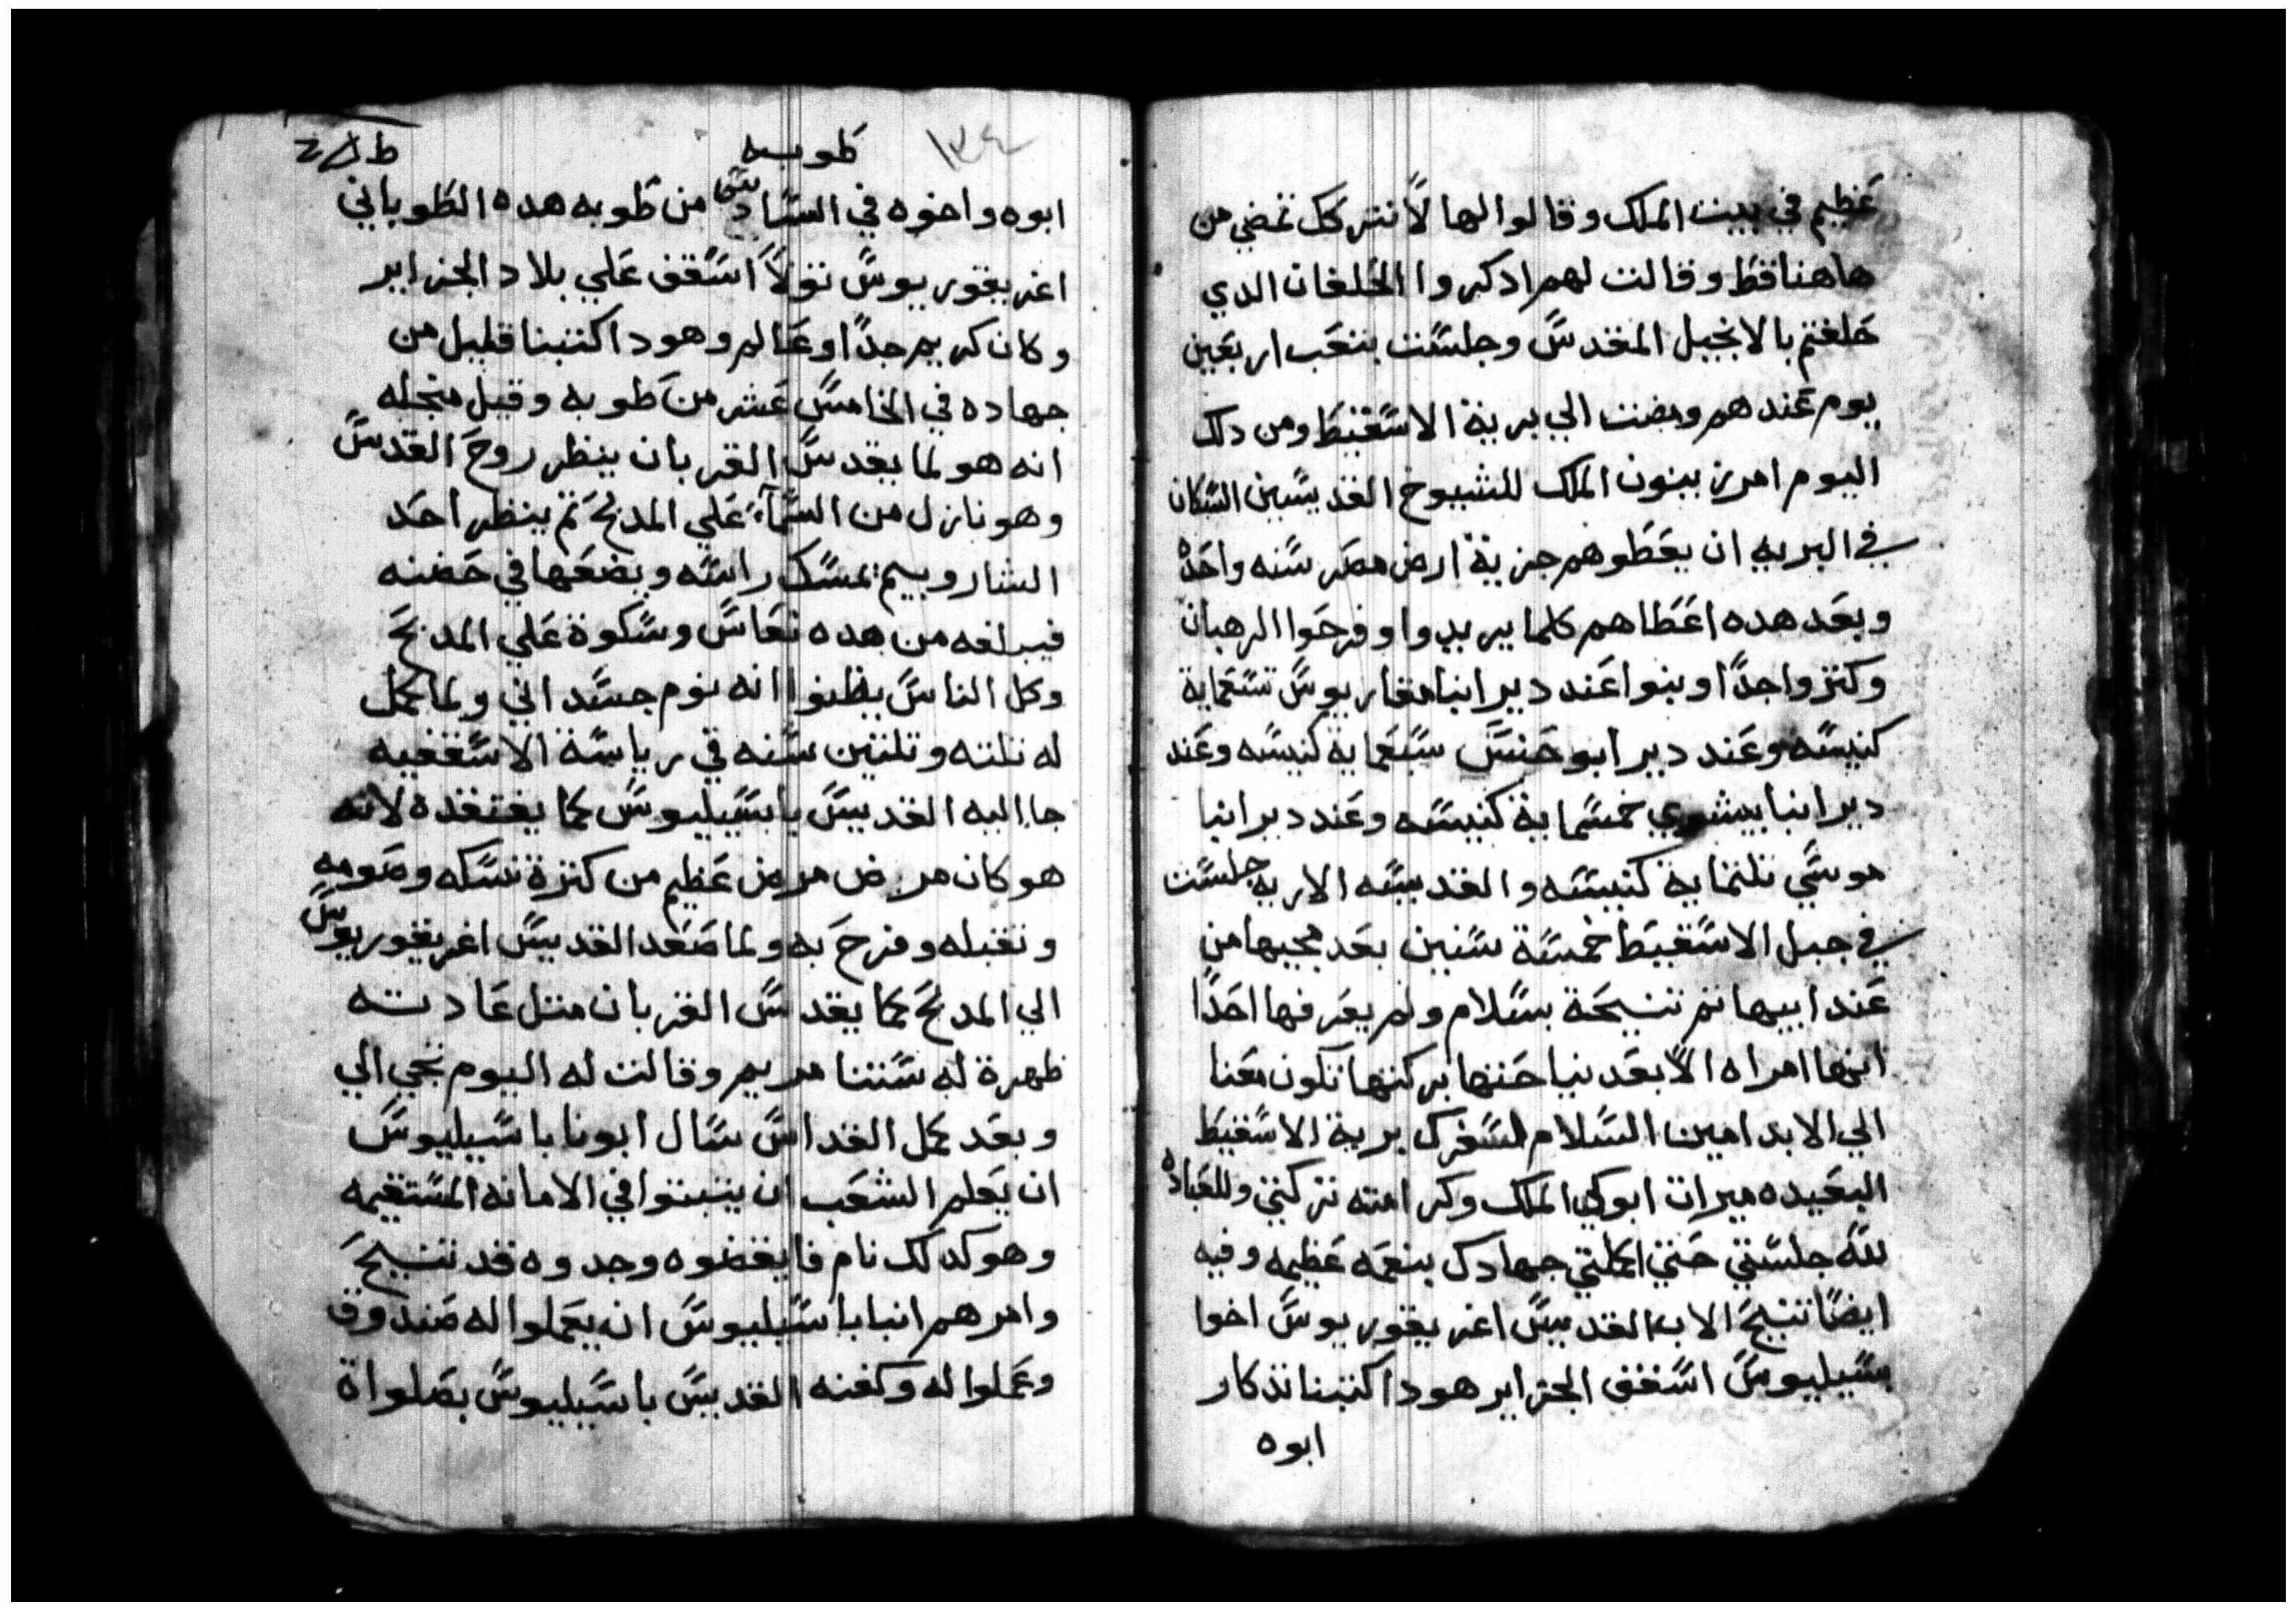 عظيم في بيت الملك وقالوا لها لا نترككي تمضي من
هاهنا قط وقالت لهم ادكروا الحلفان الدي
حلفتم بالانجيل المقدس وجلست بتعب اربعين
يوم عندهم ومضت الي برية الاسقيط ومن دلك
اليوم امر زينون الملك للشيوخ القديسين السكان
في البريه ان يعطوهم جزية ارض مصر سنه واحده
وبعد هده اعطاهم كلما يريدوا وفرحوا الرهبان
وكتروا جدا وبنوا عند دير انبا مقاريوس تسعماية
كنيسه وعند دير ابو حنس سبعماية كنيسه وعند
دير انبا بيشوي خمسماية كنيسه وعند دير انبا
موسي تلتماية كنيسه والقديسه الاريه جلست
في جبل الاسقيط خمسة سنين بعد مجيها من
عند ابيها تم تنيحة بسلام ولم يعرفها احدا
انها امراه الا بعد نياحتها بركتها تكون معنا
الي الابد امين السلام لسفرك برية الاسقيط
البعيده ميرات ابوكي الملك وكرامته تركتي وللعباده
لله جلستي حتي اكملتي جهادك بنعمه عظيمه وفيه
ايضا تنيح الاب القديس اغريقوريوس اخوا
بسيليوس اسقف الجزاير هودا كتبنا تذكار
ابوه
١٣٤
طوبه
ابوه واخوه في السادس من طوبه هده الطوباني
اغريقوريوس تولا اسقف علي بلاد الجزاير
وكان كريم جدا وعالم وهودا كتبنا قليل من
جهاده في الخامس عشر من طوبه وقيل منجله
انه هو لما يقدس القربان ينظر روح القدس
وهو نازل من السماء علي المدبح تم ينظر احد
الشاروبيم يمسك راسه ويضعها في حضنه
فيبلغه من هده نعاس وسكوة علي المدبح
وكل الناس يظنوا انه نوم جسداني ولما كمل
له تلته وتلتين سنه في رياسة الاسقفيه
جا اليه القديس باسيليوس كما يفتقده لانه
هو كان مريض مرض عظيم من كترة نسكه وصومه
وتقبله وفرح به ولما صعد القديس اغريقوريوس
الي المدبح كما يقدس القربان متل عادته
ظهرة له ستنا مريم وقالت له اليوم تجي الي
وبعد كمل القداس سال ابونا باسيليوس
ان يعلم الشعب ان يتبتوا في الامانه المستقيمه
وهو كدلك نام فايقضوه وجدوه قد تنيح
وامرهم انبا باسيليوس ان يعملوا له صندوق
وعملوا له وكفنه القديس باسيليوس بصلواة